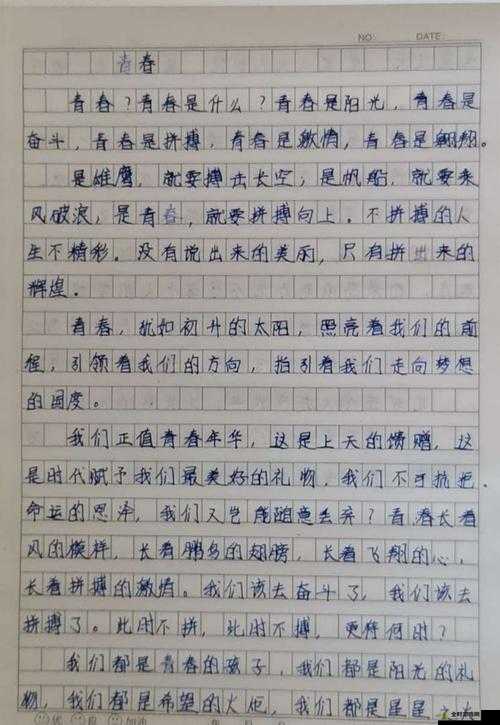 NO: DATE:
青春
青春？青春是什么？青春是阳光，青春是
奋斗，青春是拼搏，青春是激情，青春是翱翔。
是雄鹰，就要搏击长空；是帆船，就要乘
风破浪，是青春，就要拼搏向上。不拼搏的人
生不精彩。没有说出来的美丽，只有拼出来的
辉煌。
青春，犹如初升的太阳，照亮着我们的前
程，引领着我们的方向，指引着我们走向梦想
的国度。
我们正值青春年华，这是上天的馈赠，这
是时代赋予我们最美好的礼物，我们不可抗拒
命运的恩泽，我们又岂能随意丢弃？青春长着
风的模样，长着鹏鸟的翅膀，长着飞翔的心，
长着拼搏的激情。我们该去奋斗了，我们该去
拼搏了。此时不拼，此时不搏，更待何时？
我们都是青春的孩子，我们都是阳光的礼
物，我们都是希望的火炬，我们都是星星之
优 良 加油